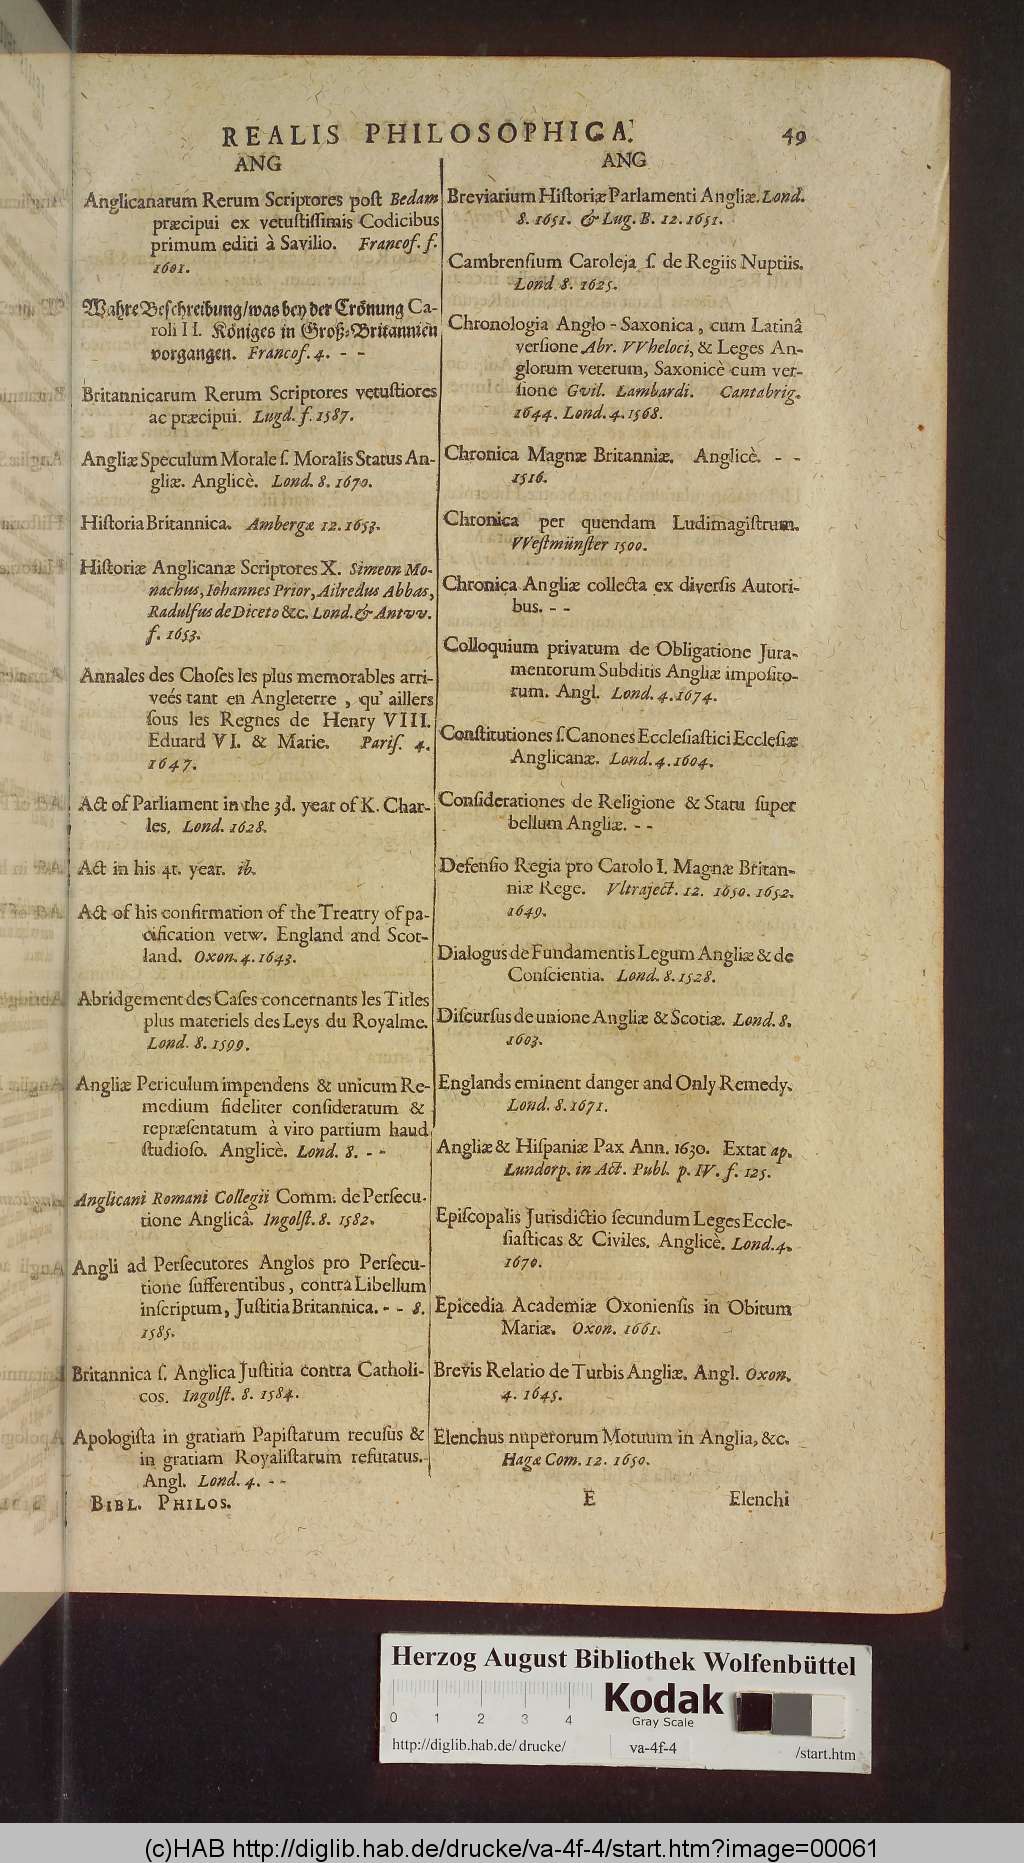 REALIS PHILOSOPHICA. 49
ANG
Anglicanarum Rerum Scriptores post Bedam
præcipui ex vetustissimis Codicibus
primum editi à Savilio. Francof. f.
1601.
Wahre Beschreibung/was bey der Crönung Ca-
roli II. Königes in Groß-Britannien
vorgangen. Francof. 4. - -
Britannicarum Rerum Scriptores vetustiores
ac præcipui. Lugd. f. 1587.
Angliæ Speculum Morale s. Moralis Status An-
gliæ. Anglicè. Lond. 8. 1670.
Historia Britannica. Ambergæ 12. 1653.
Historiæ Anglicanæ Scriptores X. Simeon Mo-
nachus, Iohannes Prior, Ailredus Abbas,
Radulfus de Diceto &c. Lond. & Antvv.
f. 1653.
Annales des Choses les plus memorables arri-
veés tant en Angleterre, qu' aillers
sous les Regnes de Henry VIII.
Eduard VI. & Marie. Paris. 4.
1647.
Act of Parliament in the 3d. year of K. Char-
les. Lond. 1628.
Act in his 4t. year. ib.
Act of his confirmation of the Treatry of pa-
cification vetw. England and Scot-
land. Oxon. 4. 1643.
Abridgement des Cases concernants les Titles
plus materiels des Leys du Royalme.
Lond. 8. 1599.
Angliæ Periculum impendens & unicum Re-
medium fideliter consideratum &
repræsentatum à viro partium haud
studioso. Anglicè. Lond. 8. - -
Anglicani Romani Collegii Comm. de Persecu-
tione Anglicâ. Ingolst. 8. 1582.
Angli ad Persecutores Anglos pro Persecu-
tione sufferentibus, contra Libellum
inscriptum, Justitia Britannica. - - 8.
1585.
Britannica s. Anglica Justitia contra Catholi-
cos. Ingolst. 8. 1584.
Apologista in gratiam Papistarum recusus &
in gratiam Royalistarum refutatus.
Angl. Lond. 4. - -
BIBL. PHILOS.
ANG
Breviarium Historiæ Parlamenti Angliæ. Lond.
8. 1651. & Lug. B. 12. 1651.
Cambrensium Caroleja s. de Regiis Nuptiis.
Lond 8. 1625.
Chronologia Anglo-Saxonica, cum Latinâ
versione Abr. VVheloci, & Leges An-
glorum veterum, Saxonicè cum ver-
sione Gvil. Lambardi. Cantabrig.
1644. Lond. 4. 1568.
Chronica Magnæ Britanniæ. Anglicè. - -
1516.
Chronica per quendam Ludimagistrum.
VVestmünster 1500.
Chronica Angliæ collecta ex diversis Autori-
bus. - -
Colloquium privatum de Obligatione Jura-
mentorum Subditis Angliæ imposito-
rum. Angl. Lond. 4. 1674.
Constitutiones s. Canones Ecclesiastici Ecclesiæ
Anglicanæ. Lond. 4. 1604.
Considerationes de Religione & Statu super
bellum Angliæ. - -
Defensio Regia pro Carolo I. Magnæ Britan-
niæ Rege. Vltraject. 12. 1650. 1652.
1649.
Dialogus de Fundamentis Legum Angliæ & de
Conscientia. Lond. 8. 1528.
Discursus de unione Angliæ & Scotiæ. Lond. 8.
1603.
Englands eminent danger and Only Remedy.
Lond. 8. 1671.
Angliæ & Hispaniæ Pax Ann. 1630. Extat ap.
Lundorp. in Act. Publ. p. IV. f. 125.
Episcopalis Jurisdictio secundum Leges Eccle-
siasticas & Civiles. Anglicè. Lond. 4.
1670.
Epicedia Academiæ Oxoniensis in Obitum
Mariæ. Oxon. 1661.
Brevis Relatio de Turbis Angliæ. Angl. Oxon.
4. 1645.
Elenchus nuperorum Motuum in Anglia, &c.
Hagæ Com. 12. 1650.
E Elenchi
Herzog August Bibliothek Wolfenbüttel
0 1 2 3 4
Kodak
Gray Scale
http://diglib.hab.de/drucke/ va-4f-4 /start.htm
(c)HAB http://diglib.hab.de/drucke/va-4f-4/start.htm?image=00061